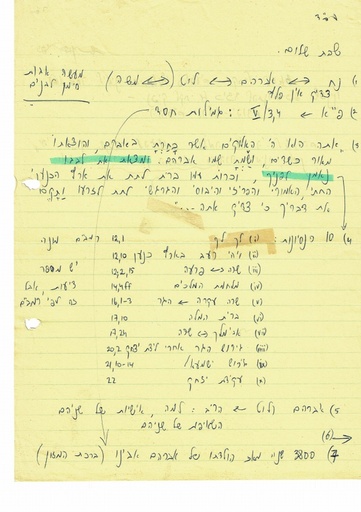 בס"ד
שבת שלום.
מעשה אבות
סימן לבנים
1) נח ↔ אברהם ↔ לוט (↔ משה)
צדיק
2) פ"א ← V/3,4 : גמילות חסד
3) "אתה הוא ה' האלקים אשר בחרת באברם, והוצאתו
מאור כשדים, ושמת שמו אברהם: ומצאת את לבבו
נאמן לפניך, וכרות עמו ברית לתת את ארץ הכנעני
החתי, האמורי והפרזי והיבוסי והגרגשי לתת לזרעו ותקם
את דבריך כי צדיק אתה..."
4) 10 הנסיונות: (i) לך לך 12,1 רמב"ם מונה
(ii) ויהי רעב בארץ כנען 12,10
(iii) שרה ← פרעה 12,2,15 יש מספר
(iv) מלחמת המלכים 14,4ff דיעות, אבל
(v) שרה עקרה ← הגר 16,1-3 כה לפי רמב"ם
(vi) ברית המלה 17,10
(vii) אבימלך ↔ שרה 17,24
(viii) גירוש הגר אחרי לידת יצחק 20,2
(ix) גירוש ישמעאל 21,10-14
(x) עקידת יצחק 22
5) אברהם ולוט ← הריב: למה, אישיות של שניהם
השאיפות של שניהם
(6)
7) 3800 שנה מאז הולדתו של אברהם אבינו (ברכת המזון)